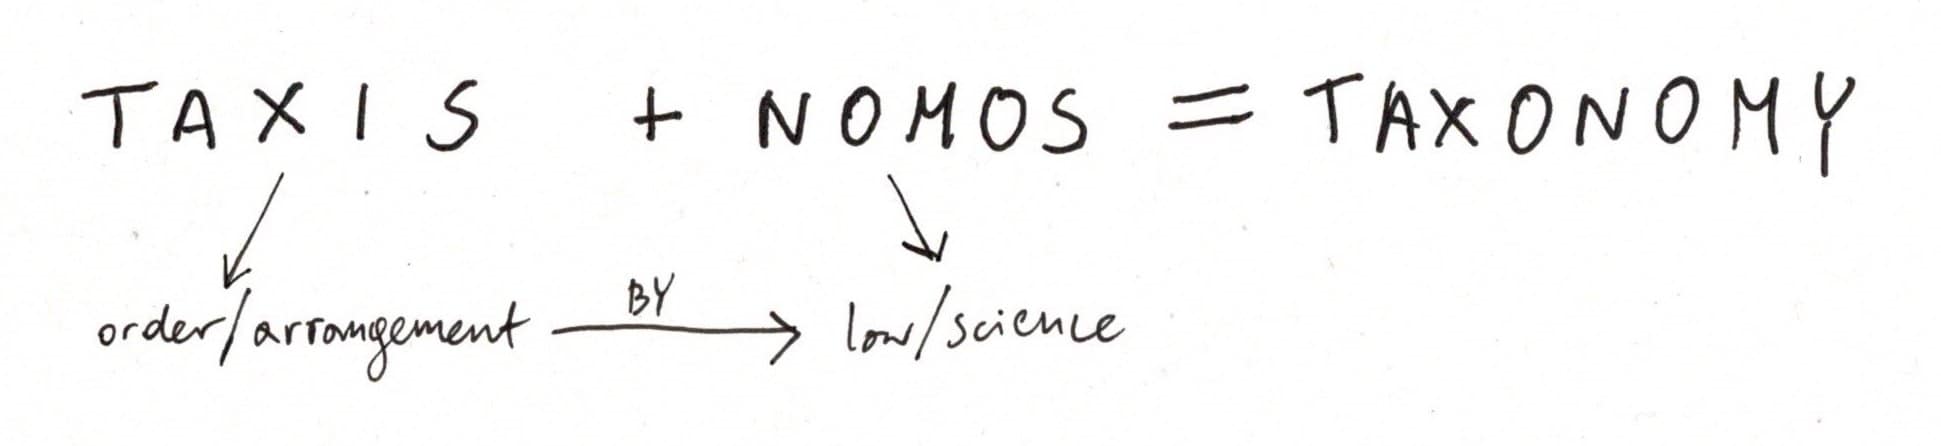 TAXIS + NOMOS = TAXONOMY
BY
order/arrangement law/science